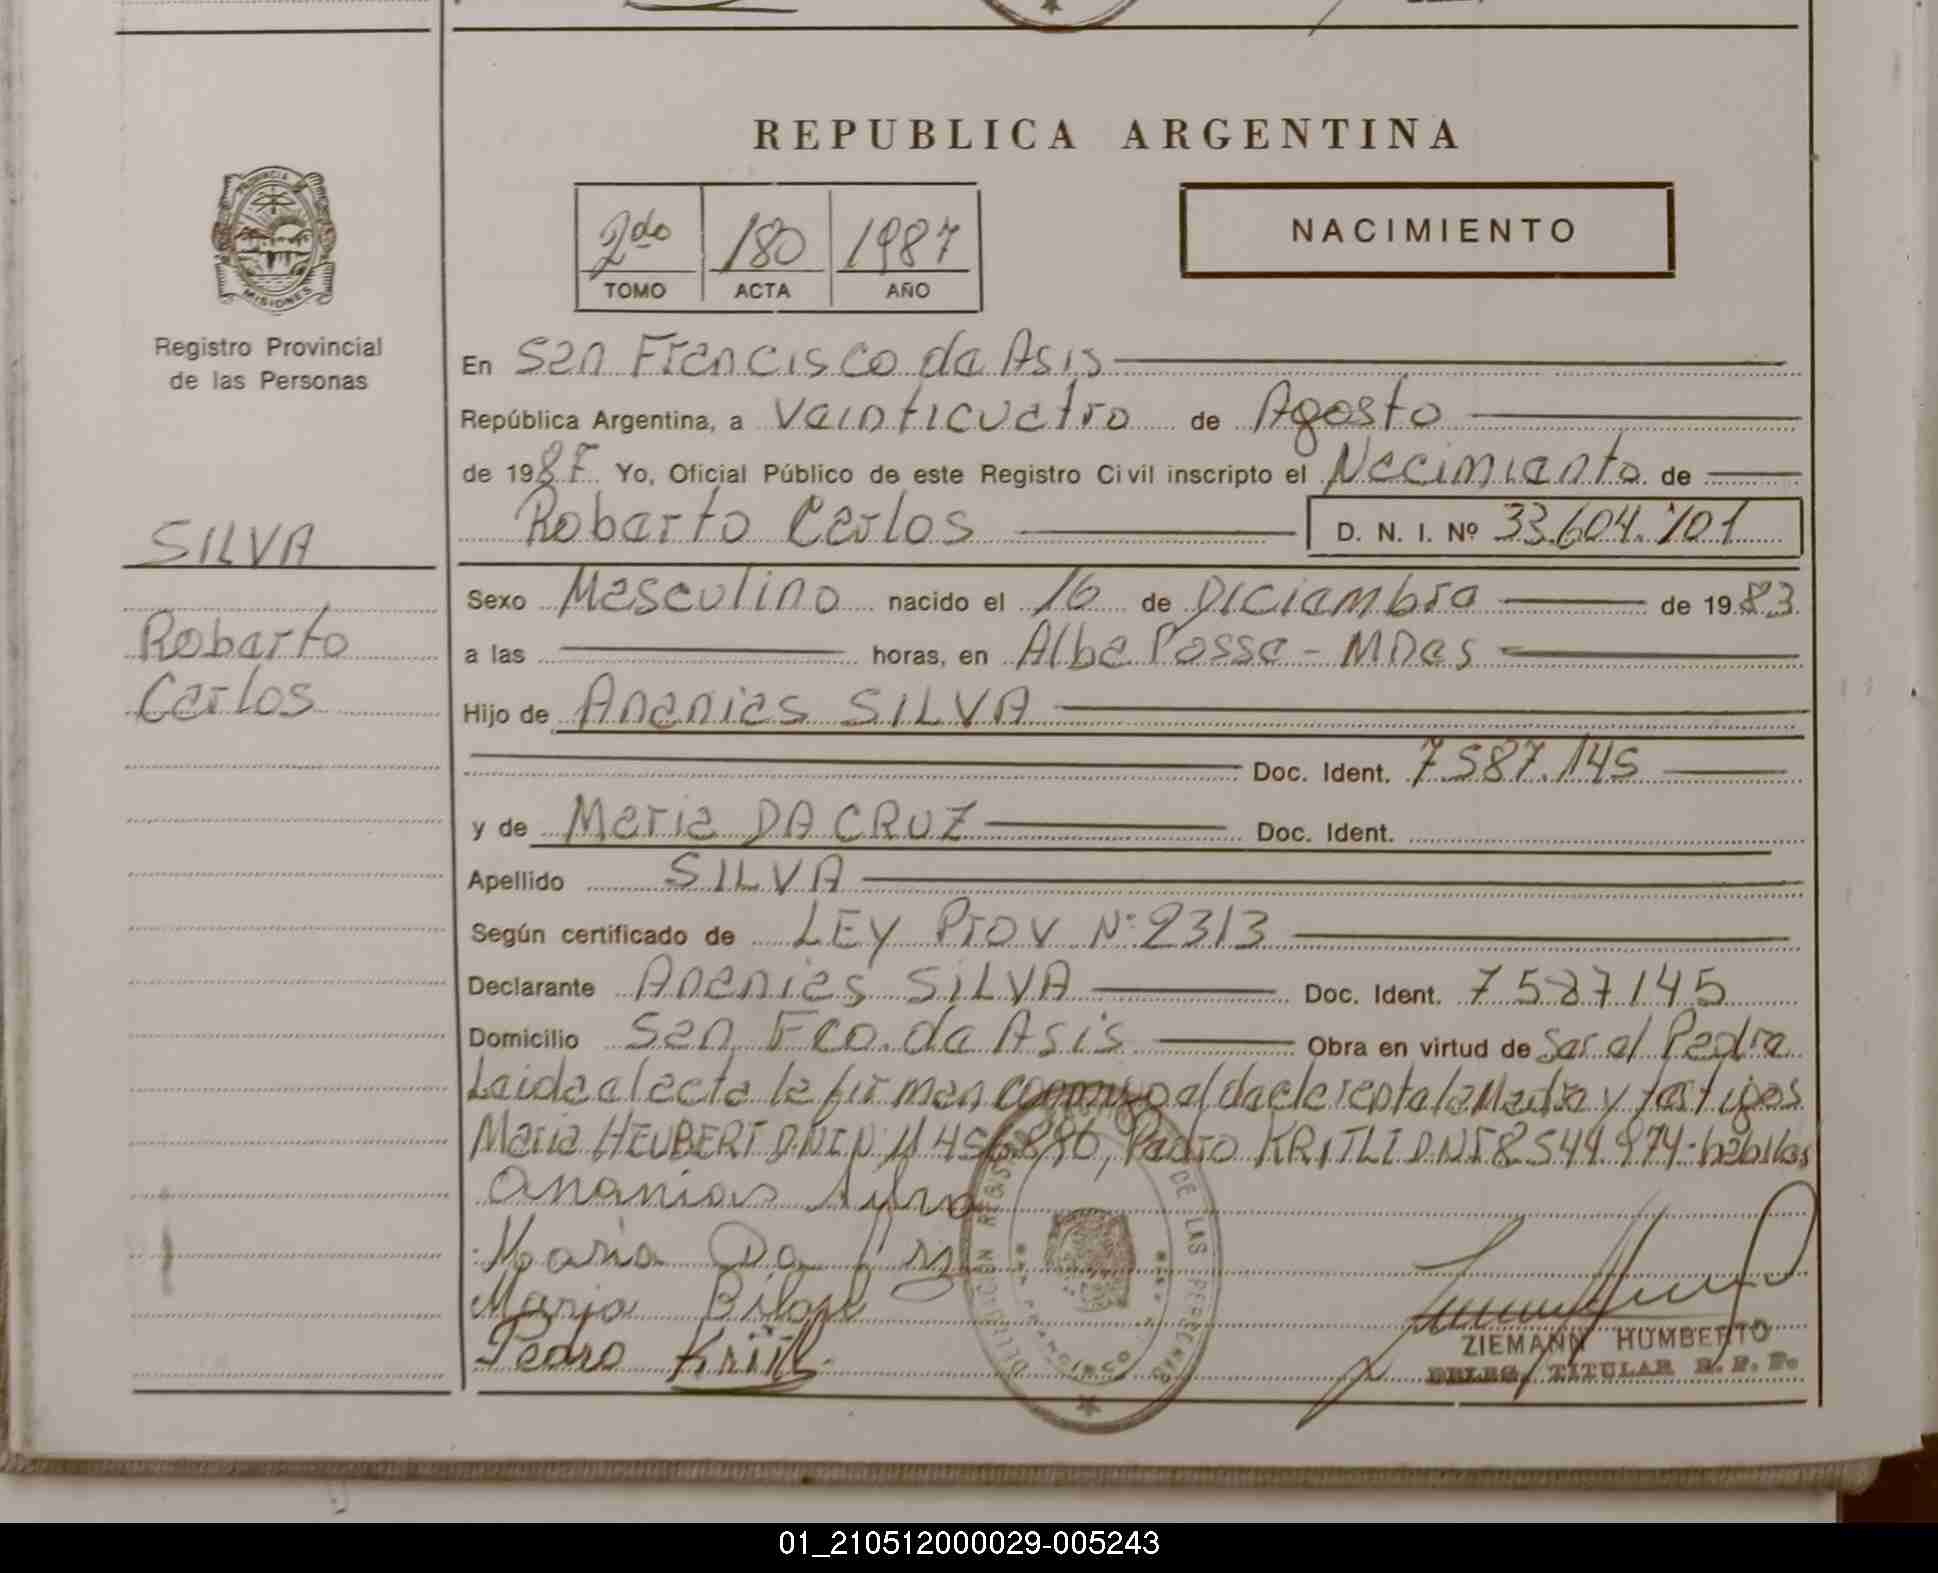 REPUBLICA ARGENTINA
PROVINCIA
MISIONES
Registro Provincial
de las Personas
2do 180 1987
TOMO ACTA AÑO
NACIMIENTO
En San Francisco de Asis
República Argentina, a Veinticuatro de Agosto
de 1987 Yo, Oficial Público de este Registro Civil inscripto el Nacimiento de
Roberto Carlos D. N. I. Nº 33.604.701
SILVA
Roberto
Carlos
Sexo Masculino nacido el 16 de Diciembre de 1983
a las horas, en Alba Posse - Mnes
Hijo de Ananias SILVA
Doc. Ident. 7.587.145
y de Maria DA CRUZ Doc. Ident.
Apellido SILVA
Según certificado de LEY Prov Nº 2313
Declarante Ananias SILVA Doc. Ident. 7587145
Domicilio San Fco. de Asis Obra en virtud de Ser el Padre
Leida el acta la firman conmigo el declarante la Madre y testigos
Maria HEUBERT DNI Nº 11456890, Pedro KRITLI DNI 8544.974-habiles
Ananias Silva
Maria Da
Maria
Pedro
DELEGACION REGISTRO DE LAS PERSONAS
ZIEMANN HUMBERTO
DELEG. TITULAR R. P. P.
01_210512000029-005243